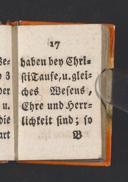 17
haben bey Chri-
sti Taufe, u. glei-
ches Wesens,
Ehre und Herr-
lichkeit sind; so
B